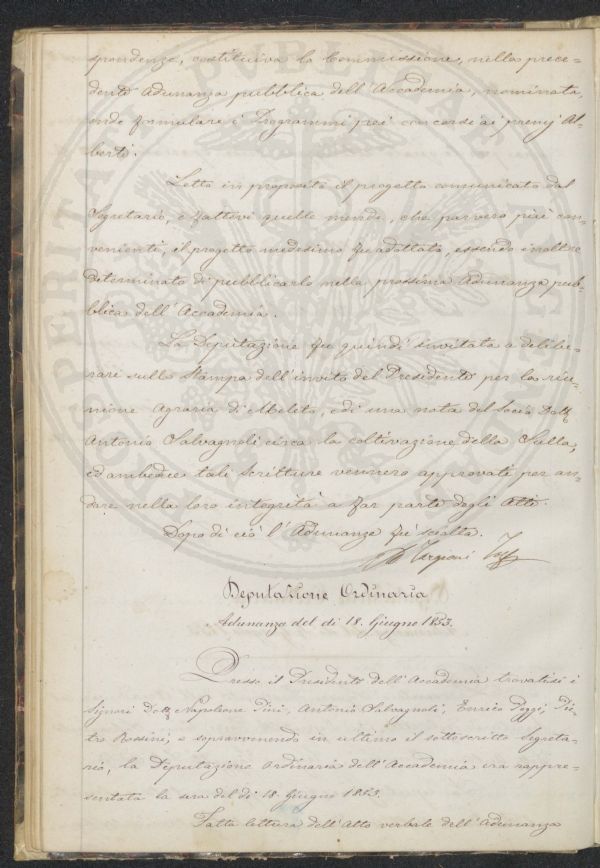 spondenze, costituiva la Commissione, nella prece-
dente Adunanza pubblica dell'Accademia, nominata,
onde formulare i Programmi pei concorsi ai premj Al-
berti.
Letto in proposito il progetto comunicato dal
Segretario, e fattevi quelle mende, che parvero più con-
venienti, il progetto medesimo fu adottato, essendo inoltre
determinato di pubblicarlo nella prossima Adunanza pub-
blica dell'Accademia.
La Deputazione fu quindi invitata a delibe-
rare sulla stampa dell'invito del Presidente per la riu-
nione Agraria di Meleto, e di una nota del Socio Dott.
Antonio Salvagnoli circa la coltivazione della Sulla,
ed ambedue tali Scritture vennero approvate per an-
dare nella loro integrità a far parte degli Atti.
Dopo di ciò l'Adunanza fu sciolta.
Targioni Tozz
Deputazione Ordinaria
Adunanza del dì 18. Giugno 1853.
Presso il Presidente dell'Accademia trovatisi i
Signori Dott. Napoleone Pini, Antonio Salvagnoli, Enrico Poggi, Pie-
tro Rossini, e sopravvenendo in ultimo il sottoscritto Segreta-
rio, la Deputazione Ordinaria dell'Accademia era rappre-
sentata la sera del dì 18. Giugno 1853.
Fatta lettura dell'Atto verbale dell'Adunanza
PROSPERITÀ PUBBLICA AUMENT